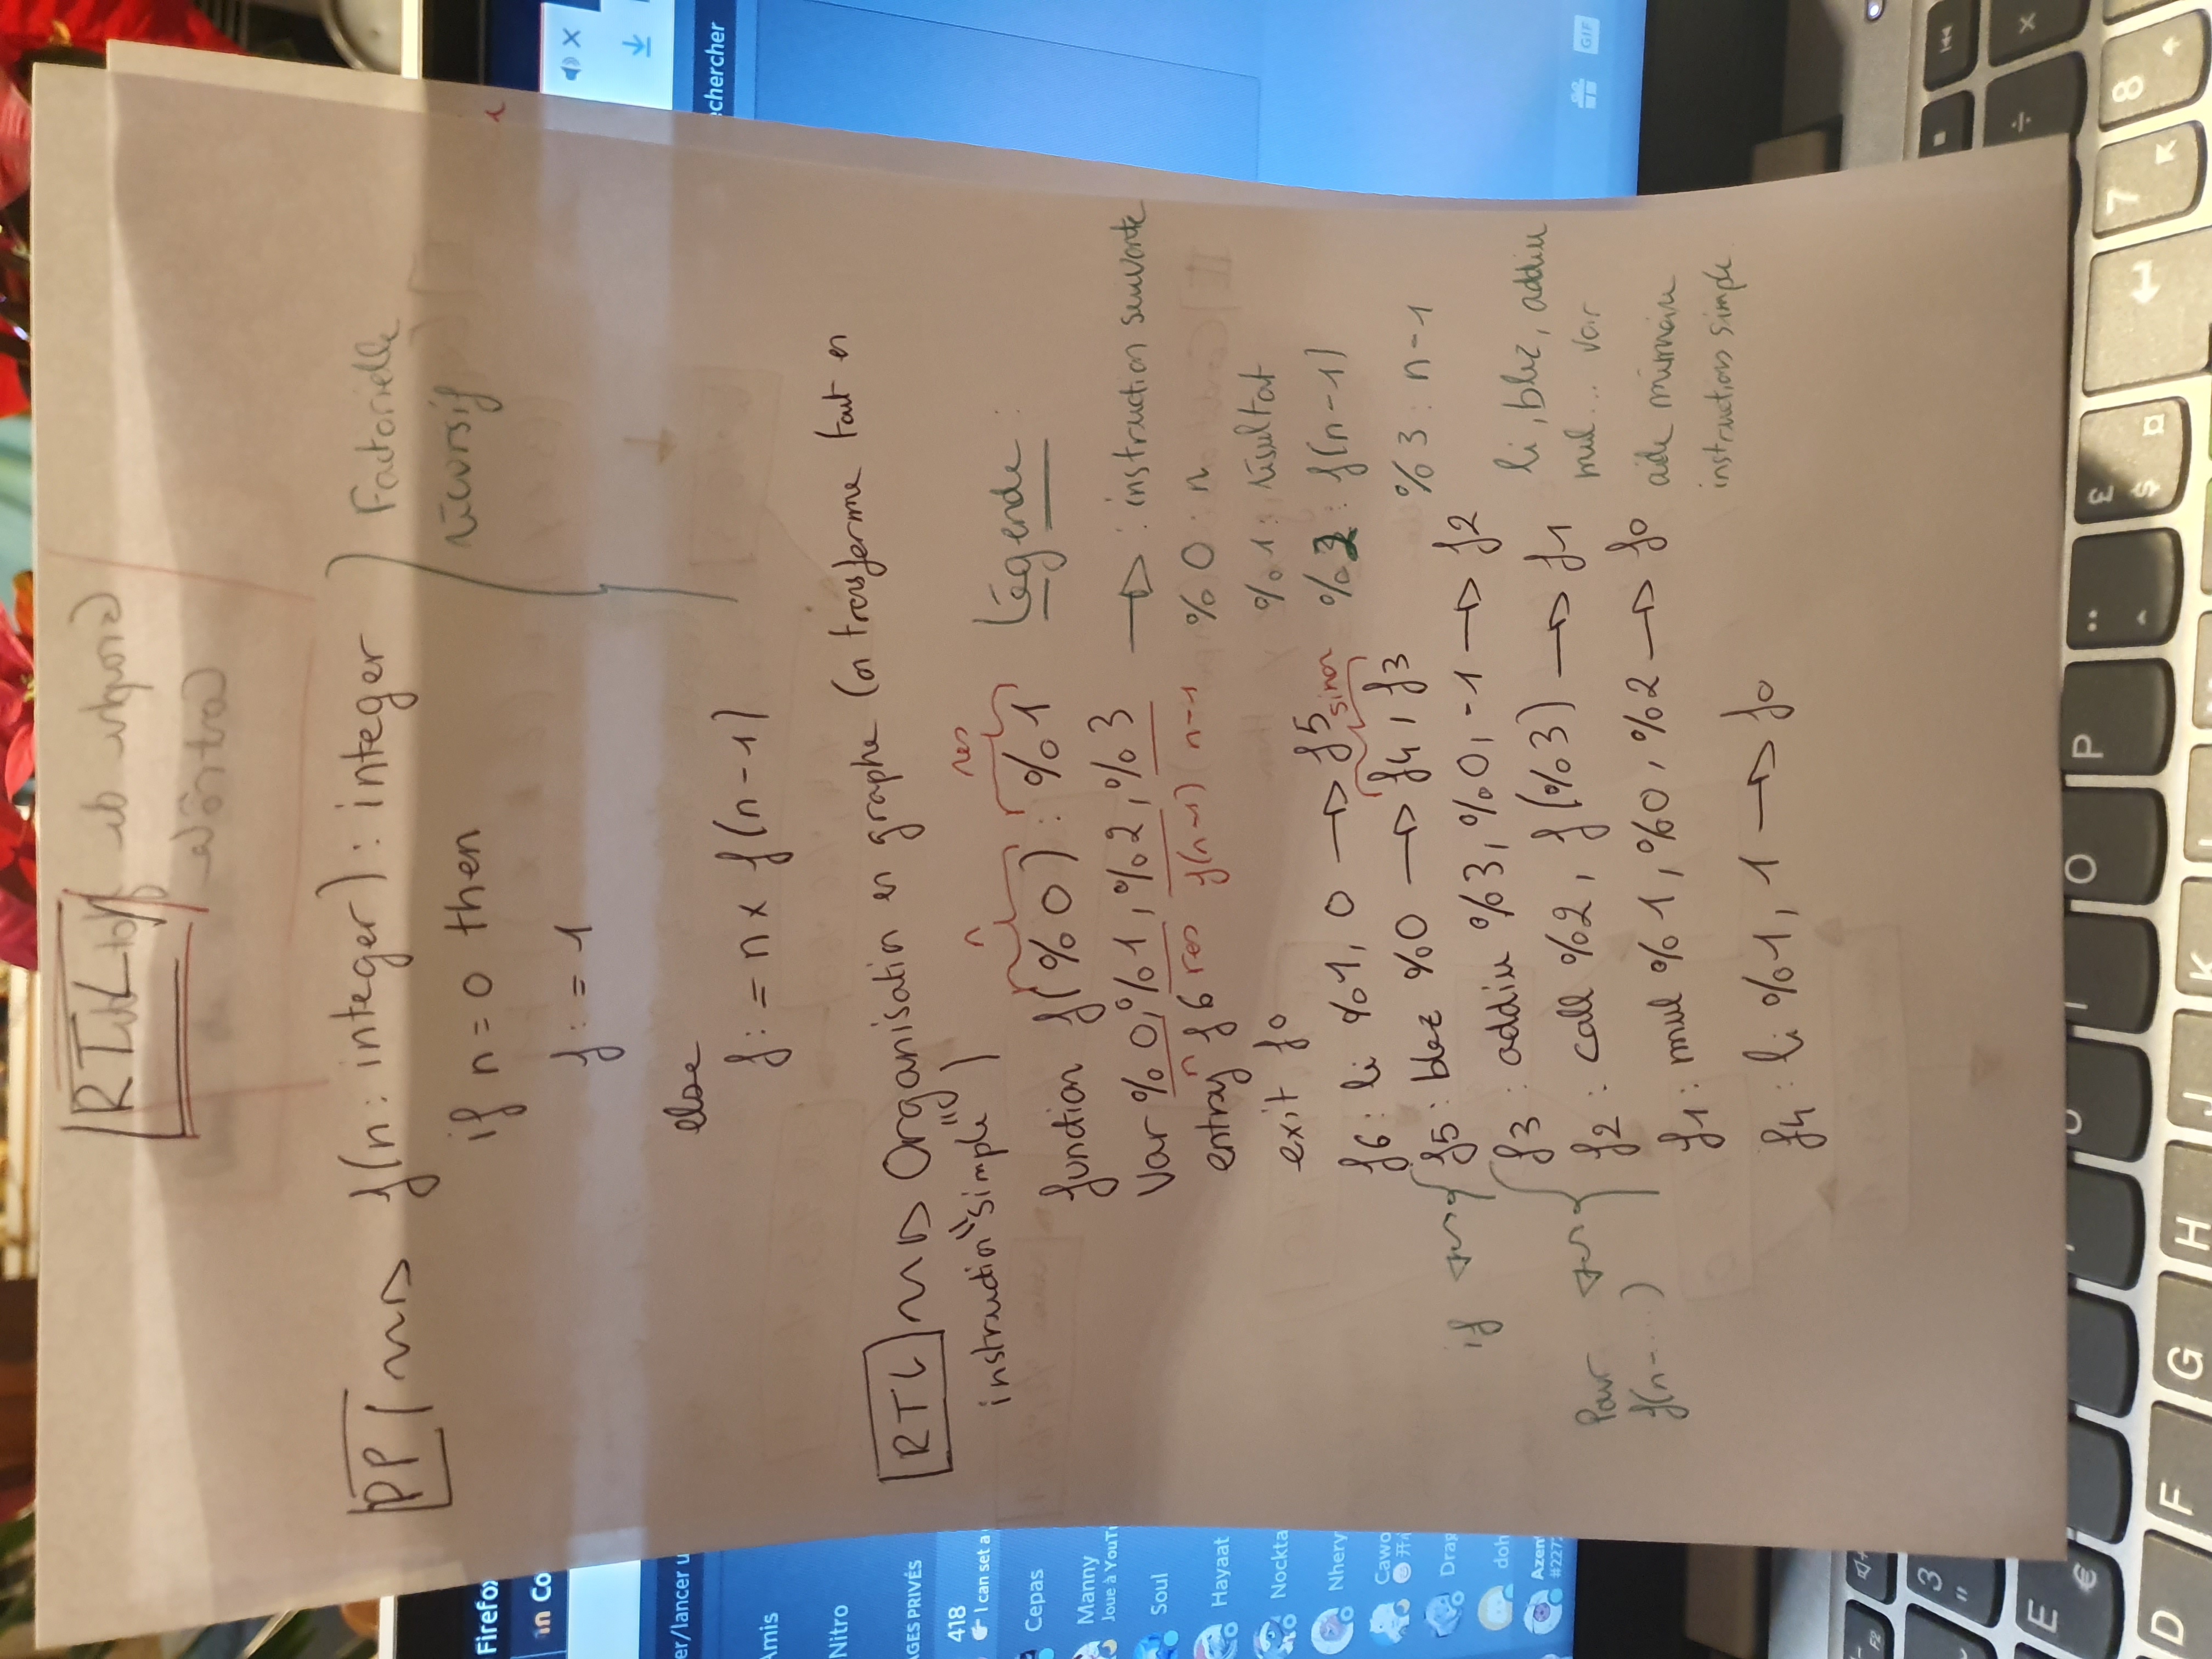 RTL
Graphe de flot de
Contrôle
PP f(n: integer): integer
if n = 0 then
f: = 1
else
f: = n x f(n-1)
Factorielle
récursif
RTL Organisation en graphe (on transforme tout en
instruction "simple")
n res
function f(%0): %1
Var %0, %1, %2, %3
n res f(n-1) n-1
entry f6
exit f0
f6: li %1, 0 → f5
sinon
if f5: blez %0 → f4, f3
f3: addiu %3, %0, -1 → f2
Pour
f(n-...)
f2: call %2, f(%3) → f1
f1: mul %1, %0, %2 → f0
f4: li %1, 1 → f0
Légende:
→ : instruction suivante
%0: n
%1: résultat
%2: f(n-1)
%3: n-1
li, blez, addiu
mul... voir
aide mémoire
instructions simple
Firefox
in Co
er/lancer u
Amis
Nitro
AGES PRIVÉS
418
I can set a
Cepas
Manny
Joue à YouTu
Soul
Hayaat
Nockta
Nhery
Cawo
Drag
doh
Azen
#227
echercher
GIF
F2
3
"
E
€
U
I
O
P
£
$
¤
7
8
D
F
G
H
J
K
L